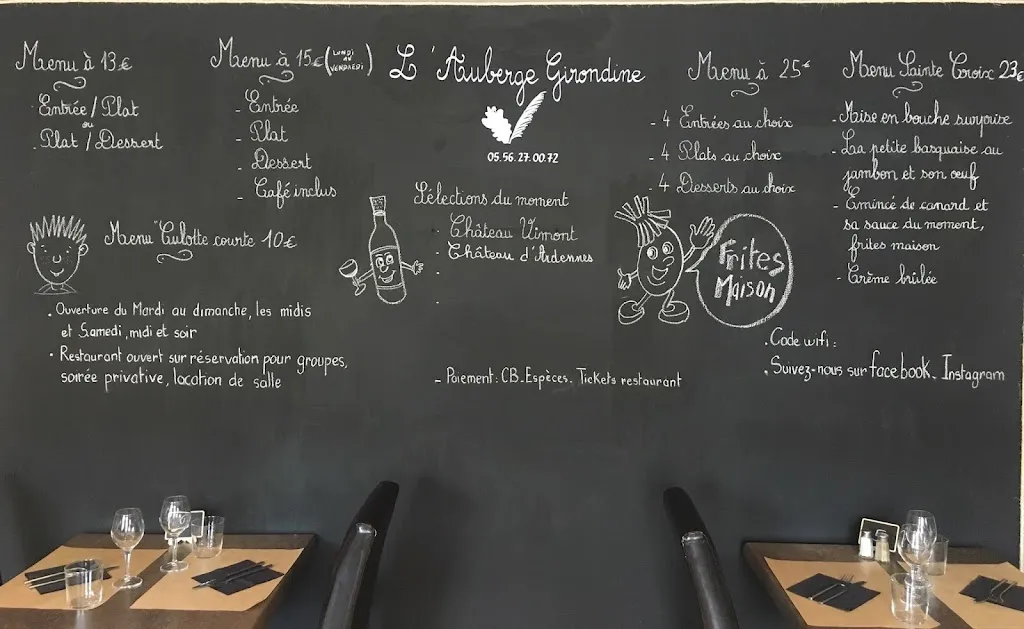 Menu à 13€
Entrée / Plat
ou
Plat / Dessert
Menu à 15€ (LUNDI AU VENDREDI)
- Entrée
- Plat
- Dessert
- Café inclus
L'Auberge Girondine
05.56.27.00.72
Menu à 25€
- 4 Entrées au choix
- 4 Plats au choix
- 4 Desserts au choix
Menu Sainte Croix 23€
- Mise en bouche surprise
- La petite basquaise au
jambon et son œuf
- Émincé de canard et
sa sauce du moment,
frites maison
- Crème brûlée
Menu "Culotte courte 10€
Sélections du moment
- Château Vimont
- Château d'Ardennes
Frites
Maison
. Ouverture du Mardi au dimanche, les midis
et Samedi, midi et soir
. Restaurant ouvert sur réservation pour groupes,
soirée privative, location de salle
- Paiement: CB_Espèces_ Tickets restaurant
. Code wifi:
. Suivez-nous sur facebook_ Instagram